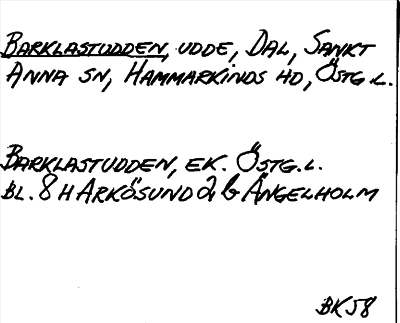 BARKLASTUDDEN, UDDE, DAL, SANKT
ANNA SN, HAMMARKINDS HD, ÖSTG.L.
BARKLASTUDDEN, EK. ÖSTG.L.
BL. 8 H ARKÖSUND 2 b ÄNGELHOLM
BK58